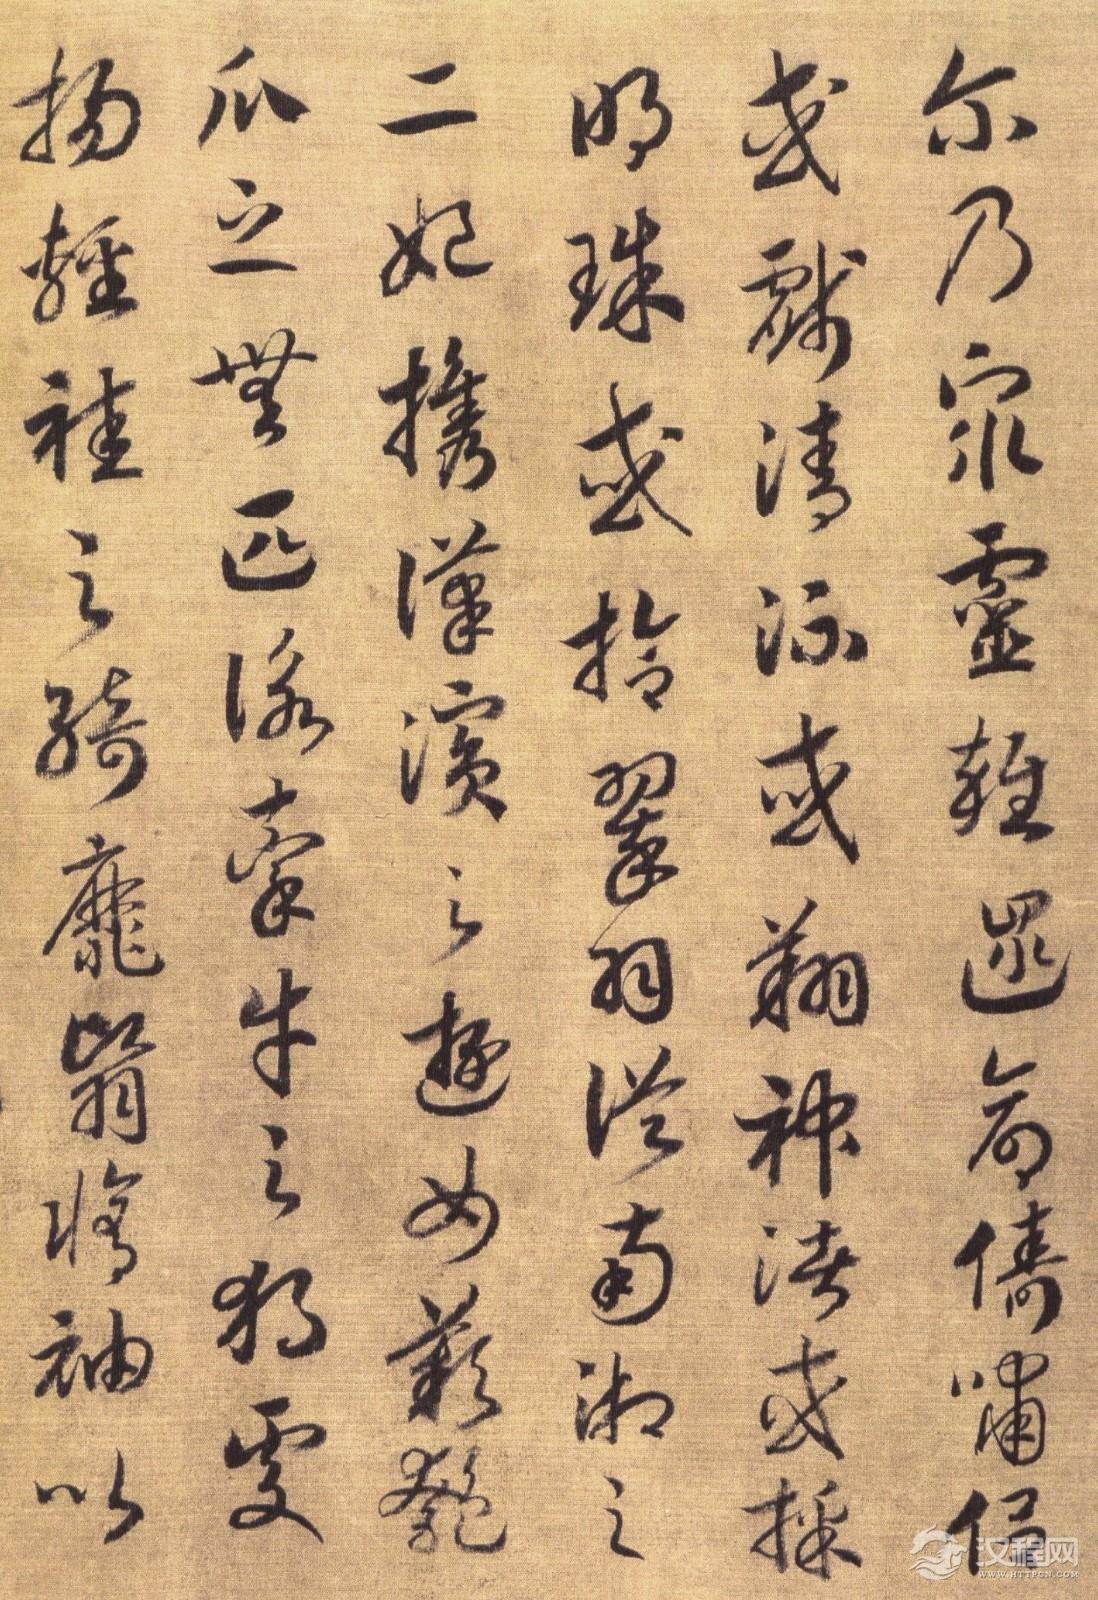 尔乃眾靈雜遝命儔嘯侶
或戲清流或翔神渚或採
明珠或拾翠羽從南湘之
二妃攜漢濱之遊女歎匏
瓜之無匹詠牽牛之獨處
揚輕袿之綺靡翳脩袖以
汉程网
WWW.HTTPCN.COM